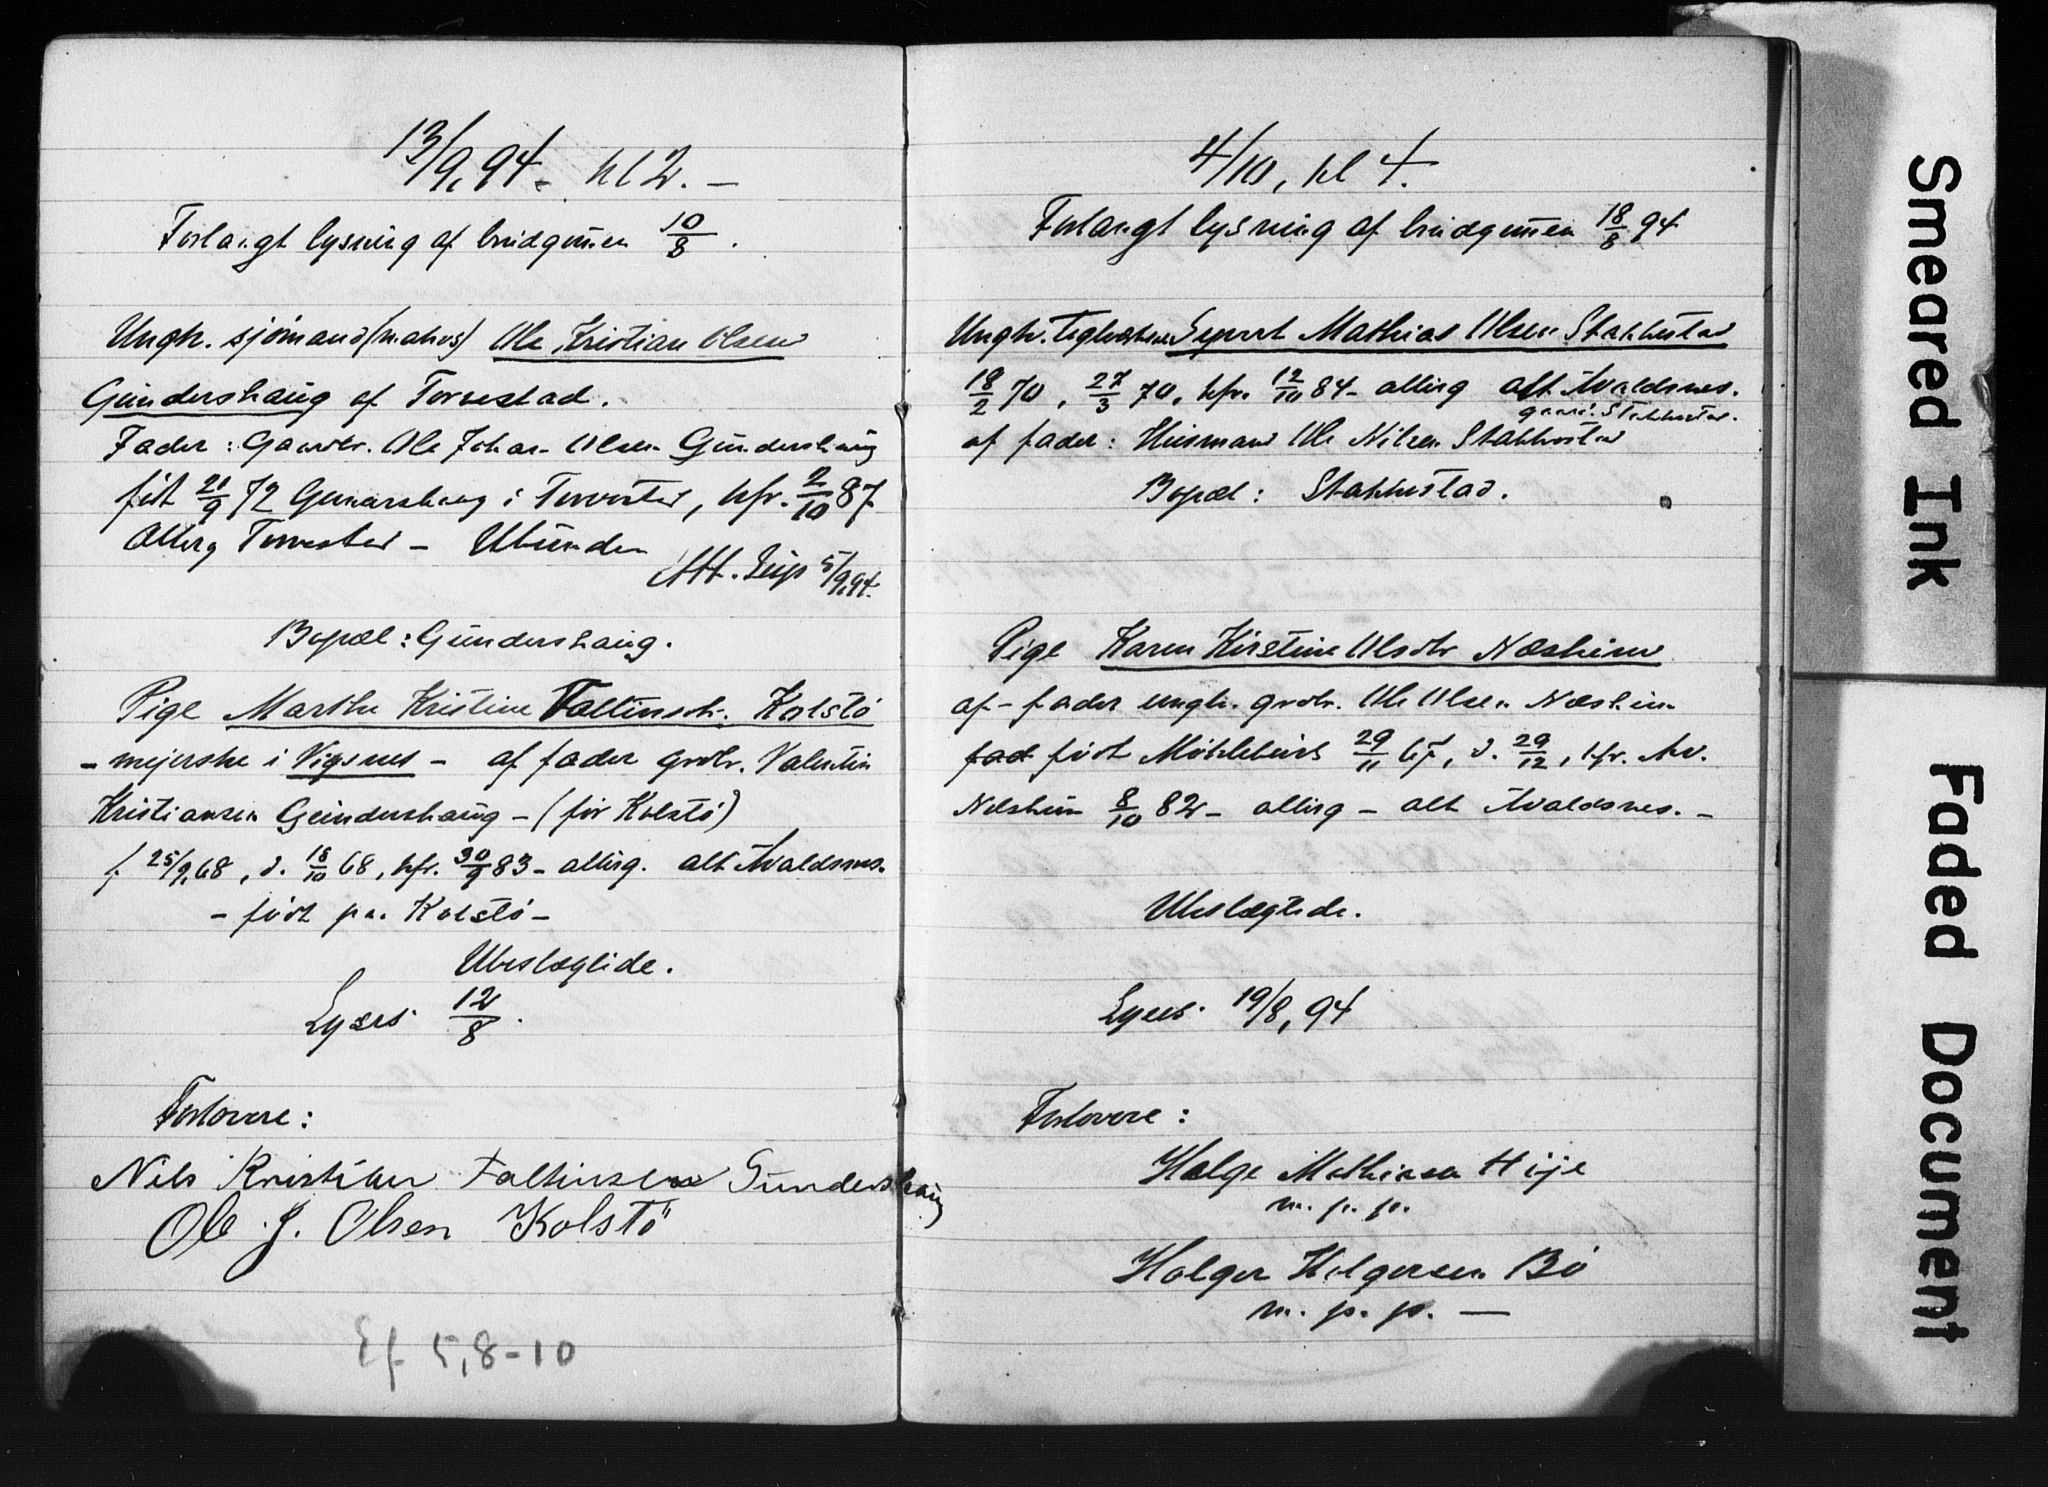 13/9,94 - kl 2. -
Forlangt lysning af brudgummen 10/8.
Ungk. sjømand (matros) Ole Kristian Olsen
Gundershaug af Torvestad.
Fader: Gaardbr. Ole Johan Olsen Gundershaug
født 21/9 72 Gunnarshaug i Torvestad, kfr. 2/10 87
Attest Torvestad - Ubunden
Att. 5/9,94.
Bopæl: Gundershaug.
Pige Marthe Kristine Faltinsdtr. Kolstø
- mejerske i Vigsnes - af fader grdbr. Valentin
Kristiansen Gundershaug - (før Kolstø)
f 25/9,68, d. 18/10 68, kfr. 30/9 83 - attesg. alt Avaldsnes.
- født paa Kolstø -
Ubeslægtede.
Lyses 12/8.
Forlovere:
Nils Kristian Faltinsen Gundershaug
Ole J. Olsen Kolstø
Ef 5,8-10
4/10, kl 4.
Forlangt lysning af brudgummen 18/8 94
Ungk. Sjovert Mathias Olsen Stakkestad
18/2 70, 27/3 70, kfr. 12/10 84 - attesg alt Avaldsnes.
Stakkestad.
af fader: Husmand Ole Nilsen Stakkestad
Bopæl: Stakkestad.
Pige Karen Kirstine Olsdtr Næsheim
af - fader ungk. grdbr. Ole Olsen Næsheim
fad født 29/11 67, d. 29/12, kfr. Av.
Næsheim 8/10 82 - attesg - alt Avaldsnes. -
Ubeslægtede.
Lyses 19/8, 94
Forlovere:
Helge Mathiasen Høje
m. p. p.
Holger Holgersen Bø
m. p. p. -
Smeared Ink
Faded Document